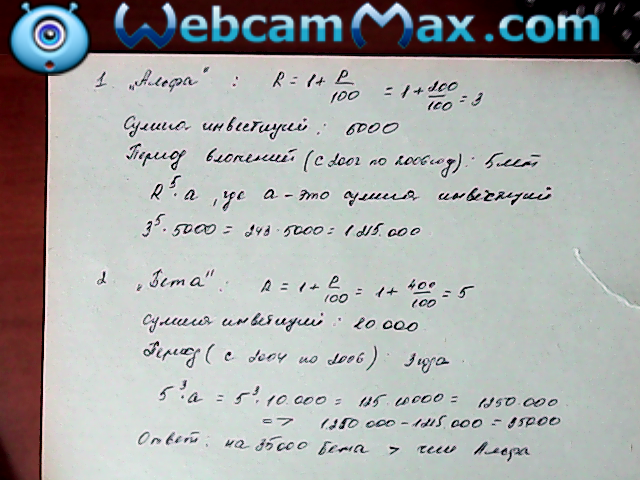 WebcamMax.com
1. „Альфа" : R = 1 + P/100 = 1 + 200/100 = 3
Сумма инвестиций: 5000
Период вложений (с 2002 по 2006 год): 5 лет
R^5 · a, где a - это сумма инвестиций
3^5 · 5000 = 243 · 5000 = 1 215.000
2. „Бета" : R = 1 + P/100 = 1 + 400/100 = 5
Сумма инвестиций: 10 000
Период (с 2004 по 2006): 3 года
5^3 · a = 5^3 · 10.000 = 125 · 10000 = 1250.000
=> 1250 000 - 1215.000 = 35000
Ответ: на 35000 Бета > чем Альфа